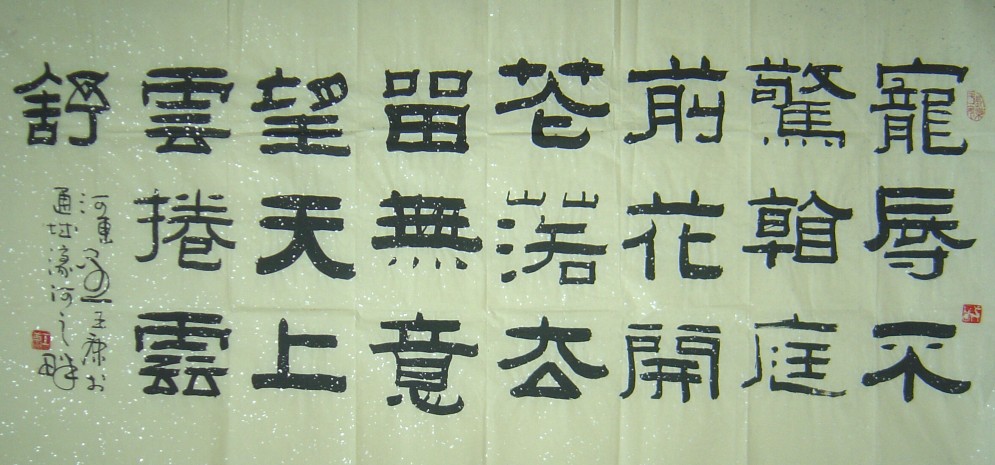 寵辱不
驚看庭
前花開
花落去
留無意
望天上
雲捲雲
舒
河東 王康书
通城濠河之畔